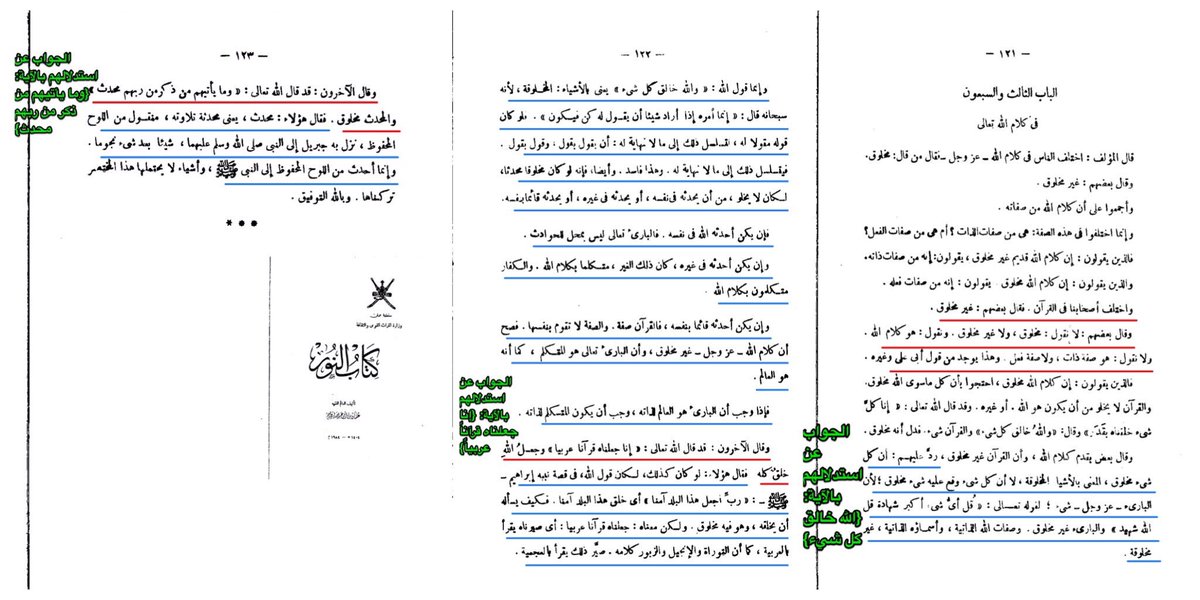 — ١٢١ —
الباب الثالث والسبعون
فى كلام الله تعالى
قال المؤلف : اختلف الناس فى كلام الله – عز وجل – فقال من قال : مخلوق.
وقال بعضهم : غير مخلوق .
وأجمعوا على أن كلام الله من صفاته .
وإنما اختلفوا فى هذه الصفة: هى من صفات الذات ؟ أم هى من صفات الفعل؟
فالذين يقولون : إن كلام الله قديم غير مخلوق ، يقولون: إنه من صفات ذاته.
والذين يقولون : إن كلام الله مخلوق يقولون : إنه من صفات فعله .
واختلف أصحابنا فى القرآن . فقال بعضهم : غير مخلوق .
وقال بعضهم : لا نقول : مخلوق ، ولا غير مخلوق . ونقول : هو كلام الله .
ولا نقول : هو صفة ذات ، ولا صفة فعل . وهذا يوجد من قول أبى على وغيره .
فالذين يقولون : إن كلام الله مخلوق ، احتجوا بأن كل ماسوى الله مخلوق.
والقرآن لا يخلو من أن يكون هو الله . أو غيره . وقد قال الله تعالى : « إنا كلَّ
شىء خلقناه بقَدَر » وقال: «واللهُ خالق كل شىء» والقرآن شىء . فدل أنه مخلوق .
وقال بعض يقدم كلام الله ، وأن القرآن غير مخلوق ، ردَّ عليهم : أن كل
شىء مخلوق ، المعنى بالأشيا المخلوقة ، لا أن كل شىء وقع عليه شىء مخلوق ؛ لأن
البارىء – عز وجل – شىء ؛ لقوله تعالى : « قُل أىُّ شىء أكبر شهادة قل
الله شهيد » والبارىء غير مخلوق . وصفات الله الذاتية ، وأسماؤه الذاتية ، غير
مخلوقة .
الجواب
عن
استدلالهم
بالآية:
{الله خالق
كل شيء}
— ١٢٢ —
وإنما قول الله : « والله خالق كل شىء » يعنى بالأشياء : المخلوقة ، لأنه
سبحانه قال : « إنما أمره إذا أراد شيئا أن يقول له كن فيكون » . فلو كان
قوله مقولا له ، لتسلسل ذلك إلى ما لا نهاية له : أن يقول بقول ، وقول بقول .
فيتسلسل ذلك إلى ما لا نهاية له . وهذا فاسد . وأيضا، فإنه لو كان مخلوقا محدثا،
لكان لا يخلو ، من أن يحدثه فى نفسه ، أو يحدثه فى غيره ، أو يحدثه قائما بنفسه.
فإن يكن أحدثه الله فى نفسه . فالبارىء تعالى ليس بمحل للحوادث .
وإن يكن أحدثه فى غيره ، كان ذلك الغير ، متكلما بكلام الله . والكفار
متكلمون بكلام الله
وإن يكن أحدثه قائما بنفسه ، فالقرآن صفة . والصفة لا تقوم بنفسها . فصح
أن كلام الله – عز وجل – غير مخلوق ، وأن البارىء تعالى هو المتكلم ، كما أنه
هو العالم .
فإذا وجب أن البارىء هو العالم لذاته ، وجب أن يكون المتكلم لذاته .
وقال الآخرون : قد قال الله تعالى : « إنا جعلناه قرآنا عربيا » وجعلُ اللهِ
خلقُ كله فقال هؤلاء : لو كان كذلك، لكان قول الله، فى قصة نبيه إبراهيم –
ﷺ – : « ربِّ اجعل هذا البلد آمنا » أى خلق هذا البلد آمنا . فكيف يسأله
أن يخلقه ، وهو فيه مخلوق . ولكن معناه : جعلناه قرآنا عربيا : أى صيرناه يقرأ
بالعربية ، كما أن التوراة والإنجيل والزبور كلامه . صيَّر ذلك يقرأ بالعجمية .
الجواب عن
استدلالهم
بالآية: {إنا
جعلناه قرآناً
عربياً}
— ١٢٣ —
وقال الآخرون : قد قال الله تعالى : « وما يأتيهم من ذكر من ربهم محدث »
والمحدث مخلوق . فقال هؤلاء : محدث ، يعنى محدثة تلاوته ، منقول من اللوح
المحفوظ ، نزل به جبريل إلى النبى صلى الله وسلم عليهما ، شيئا بعد شىء نجوما .
وإنما أحدث من اللوح المحفوظ إلى النبى ﷺ ، وأشياء لا يحتملها هذا المختصر
تركناها . وبالله التوفيق .
الجواب عن
استدلالهم بالآية:
{وما يأتيهم من
ذكر من ربهم
محدث}
سلطنة عمان
وزارة التراث القومى والثقافة
كتاب النور